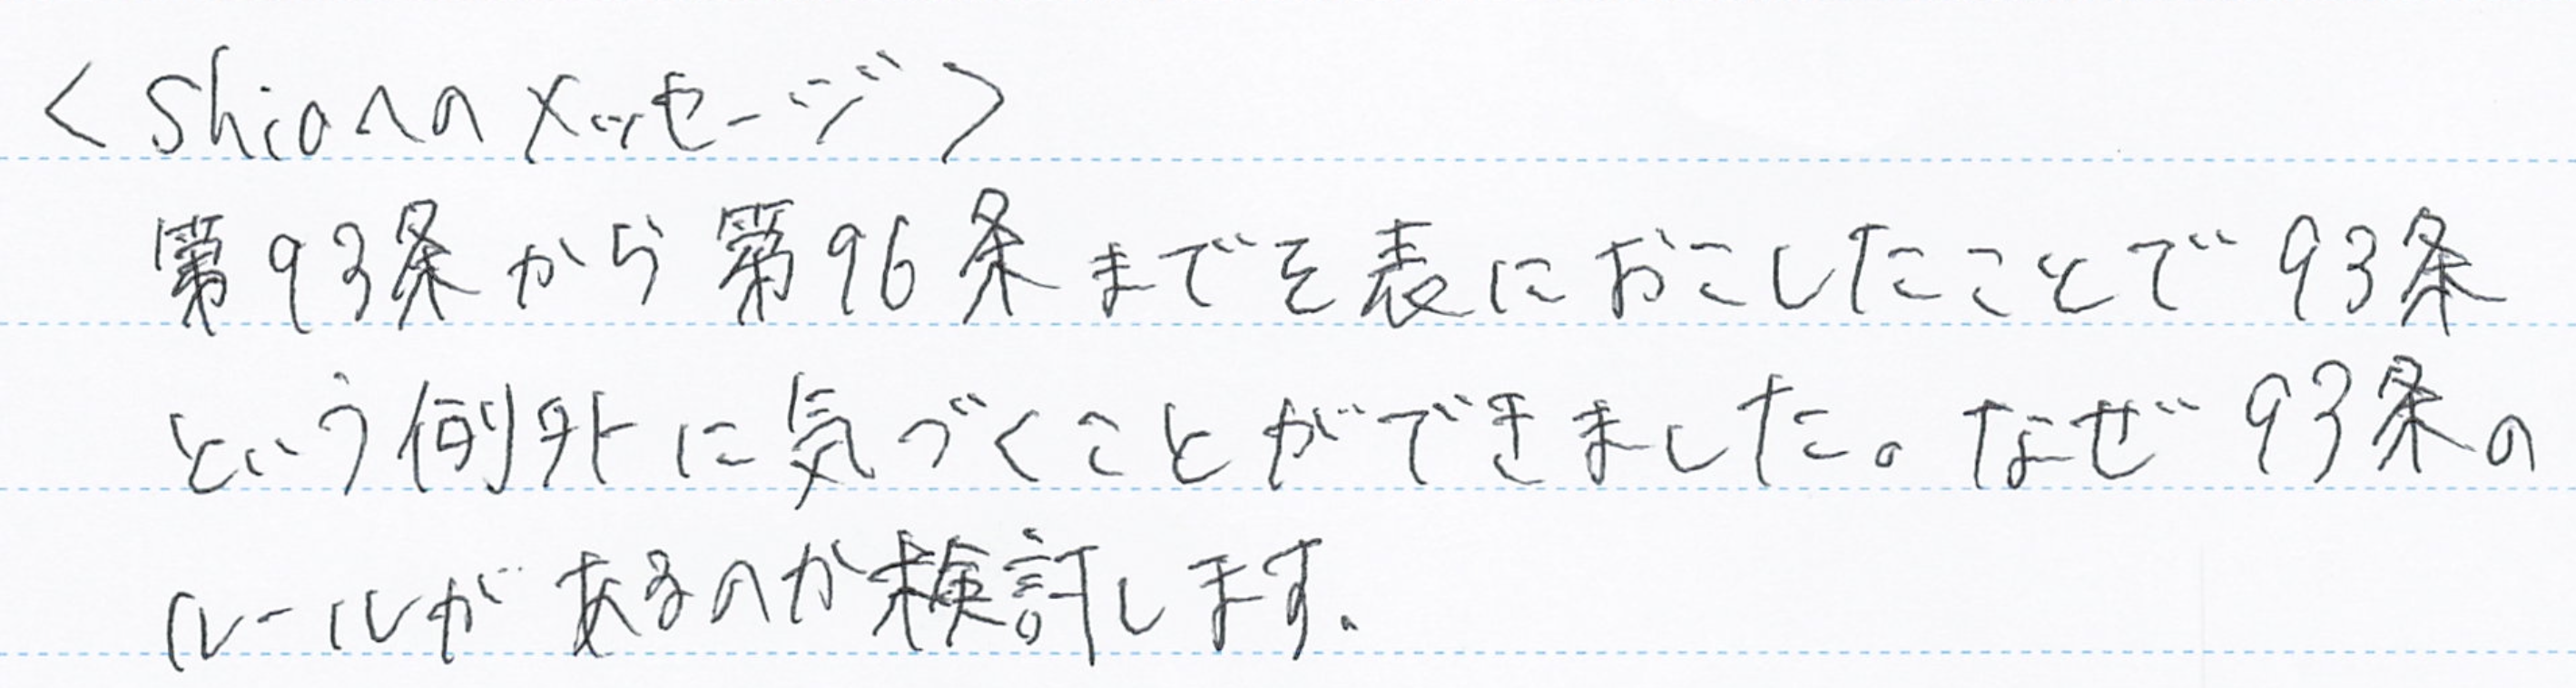 <Shioへのメッセージ>
第93条から第96条までを表におこしたことで93条
という例外に気づくことができました。なぜ93条の
ルールがあるのか検討します。